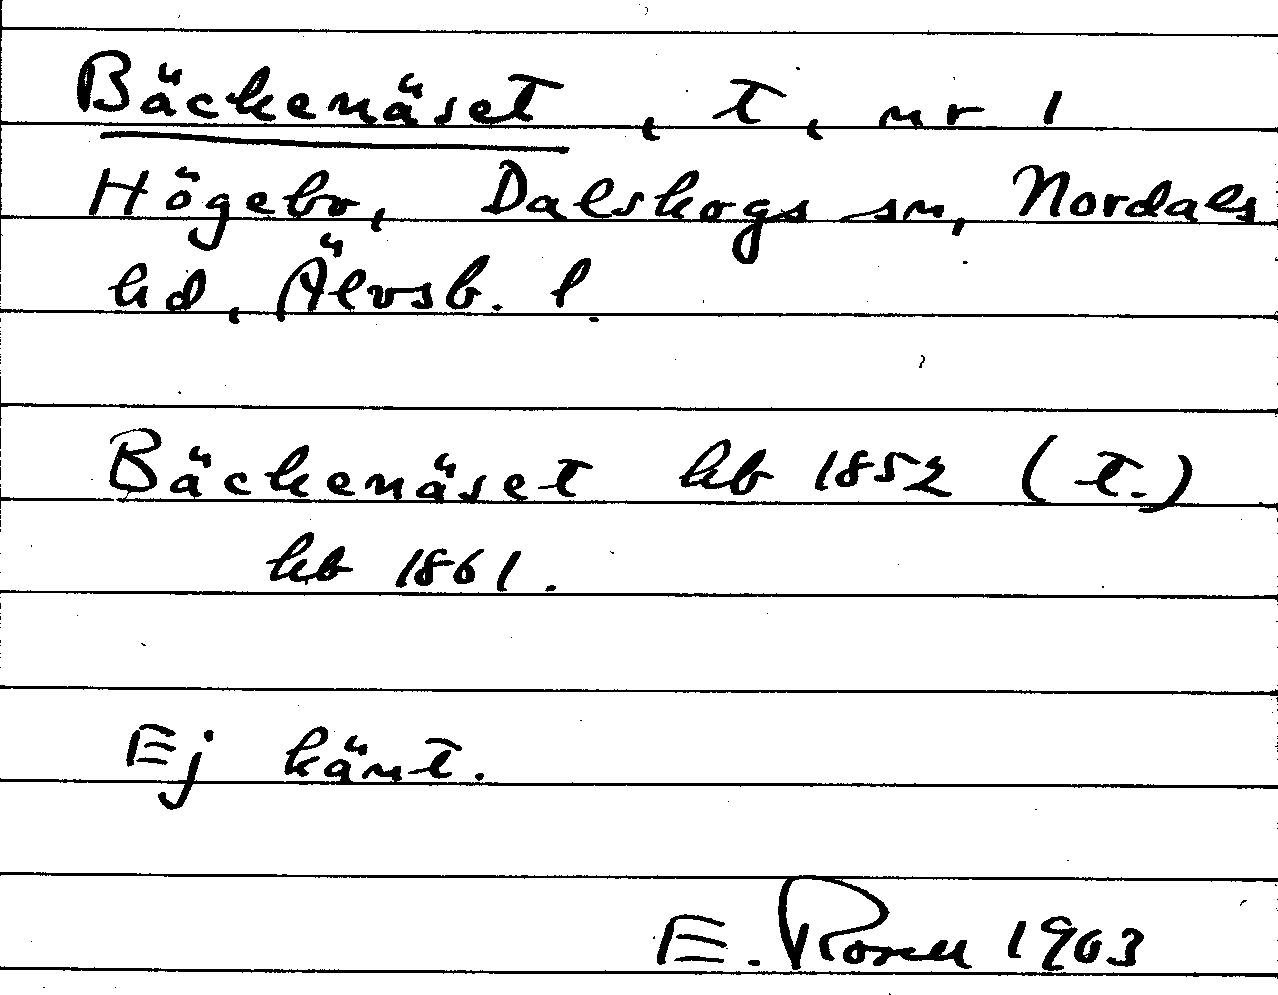 Bäckenäset, t, nr 1
Högebo, Dalskogs sn, Nordals
hd, Älvsb. l.
Bäckenäset hb 1852 (t.)
hb 1861.
Ej känt.
E. Rosell 1903